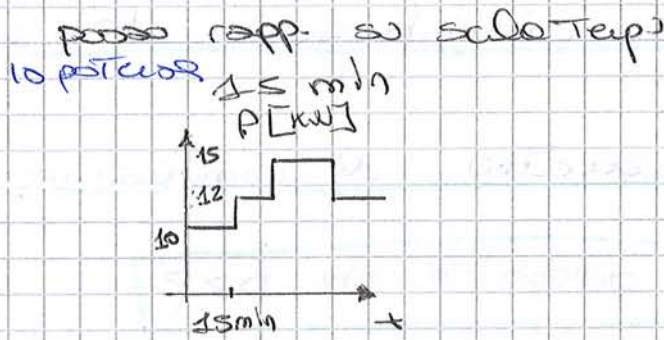 posso rapp. su scala Temp
la potenza
15 min
P [kW]
15
12
10
15min
t